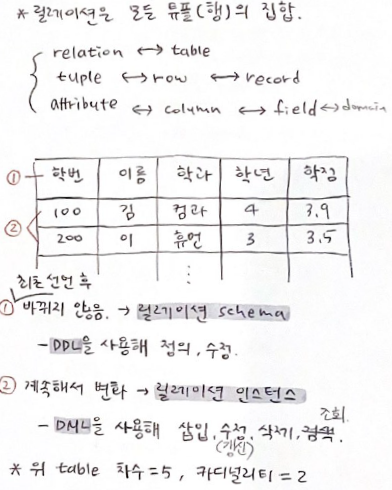 * 릴레이션은 모든 튜플(행)의 집합.
relation ↔ table
tuple ↔ row ↔ record
attribute ↔ column ↔ field ↔ domain
① 학번 이름 학과 학년 학점
② 100 김 컴과 4 3.9
200 이 휴먼 3 3.5
⋮
최초 선언 후
① 바뀌지 않음. → 릴레이션 schema
- DDL을 사용해 정의, 수정.
② 계속해서 변화 → 릴레이션 인스턴스
조회.
- DML을 사용해 삽입, 수정, 삭제, 검색.
(갱신)
* 위 table 차수=5, 카디널리티=2